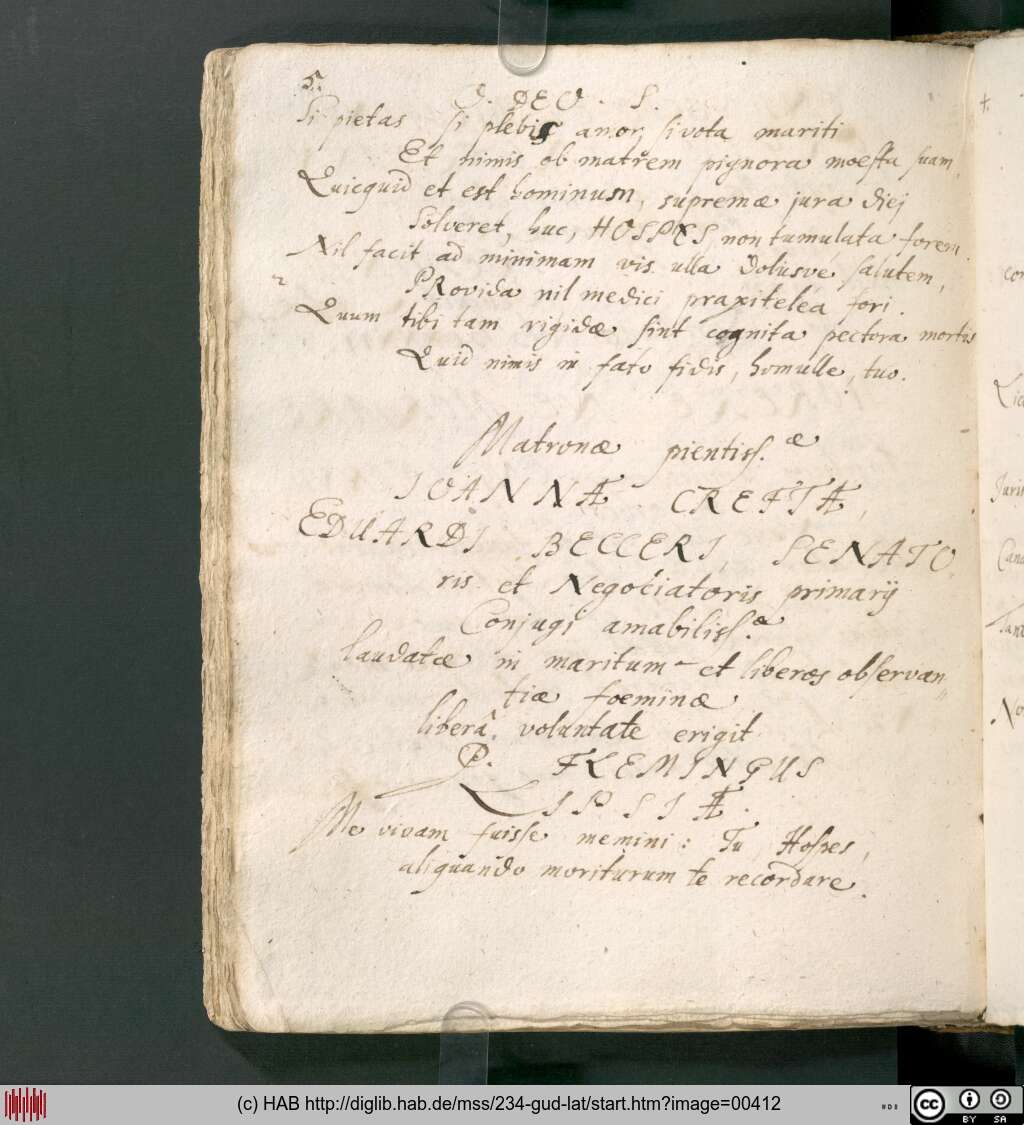 5.
J. DEO. S.
Si pietas si plebis amor, si vota mariti
Et nimis ob matrem pignora moesta suam,
Quicquid et est hominum, supremæ jura diej
Solveret, huc, HOSPES, non tumulata forem.
Nil facit ad minimam vis ulla dolusve salutem,
PRovida nil medici praxitelea fori.
Quum tibi tam rigidæ sint cognita pectora mortis
Quid nimis in fato fidis, homulle, tuo.
Matronæ pientiss.æ
IOANNÆ CREFTÆ,
EDUARDI BECCERI, SENATO
ris et Negotiatoris primarij
Conjugi amabiliss.æ
laudatæ in maritum et liberos observan
tiæ foeminæ
liberâ voluntate erigit
P. FLEMINGUS
LIPSIÆ.
Me vivam fuisse memini: Tu Hospes,
aliquando moriturum te recordare.
(c) HAB http://diglib.hab.de/mss/234-gud-lat/start.htm?image=00412
cc BY SA